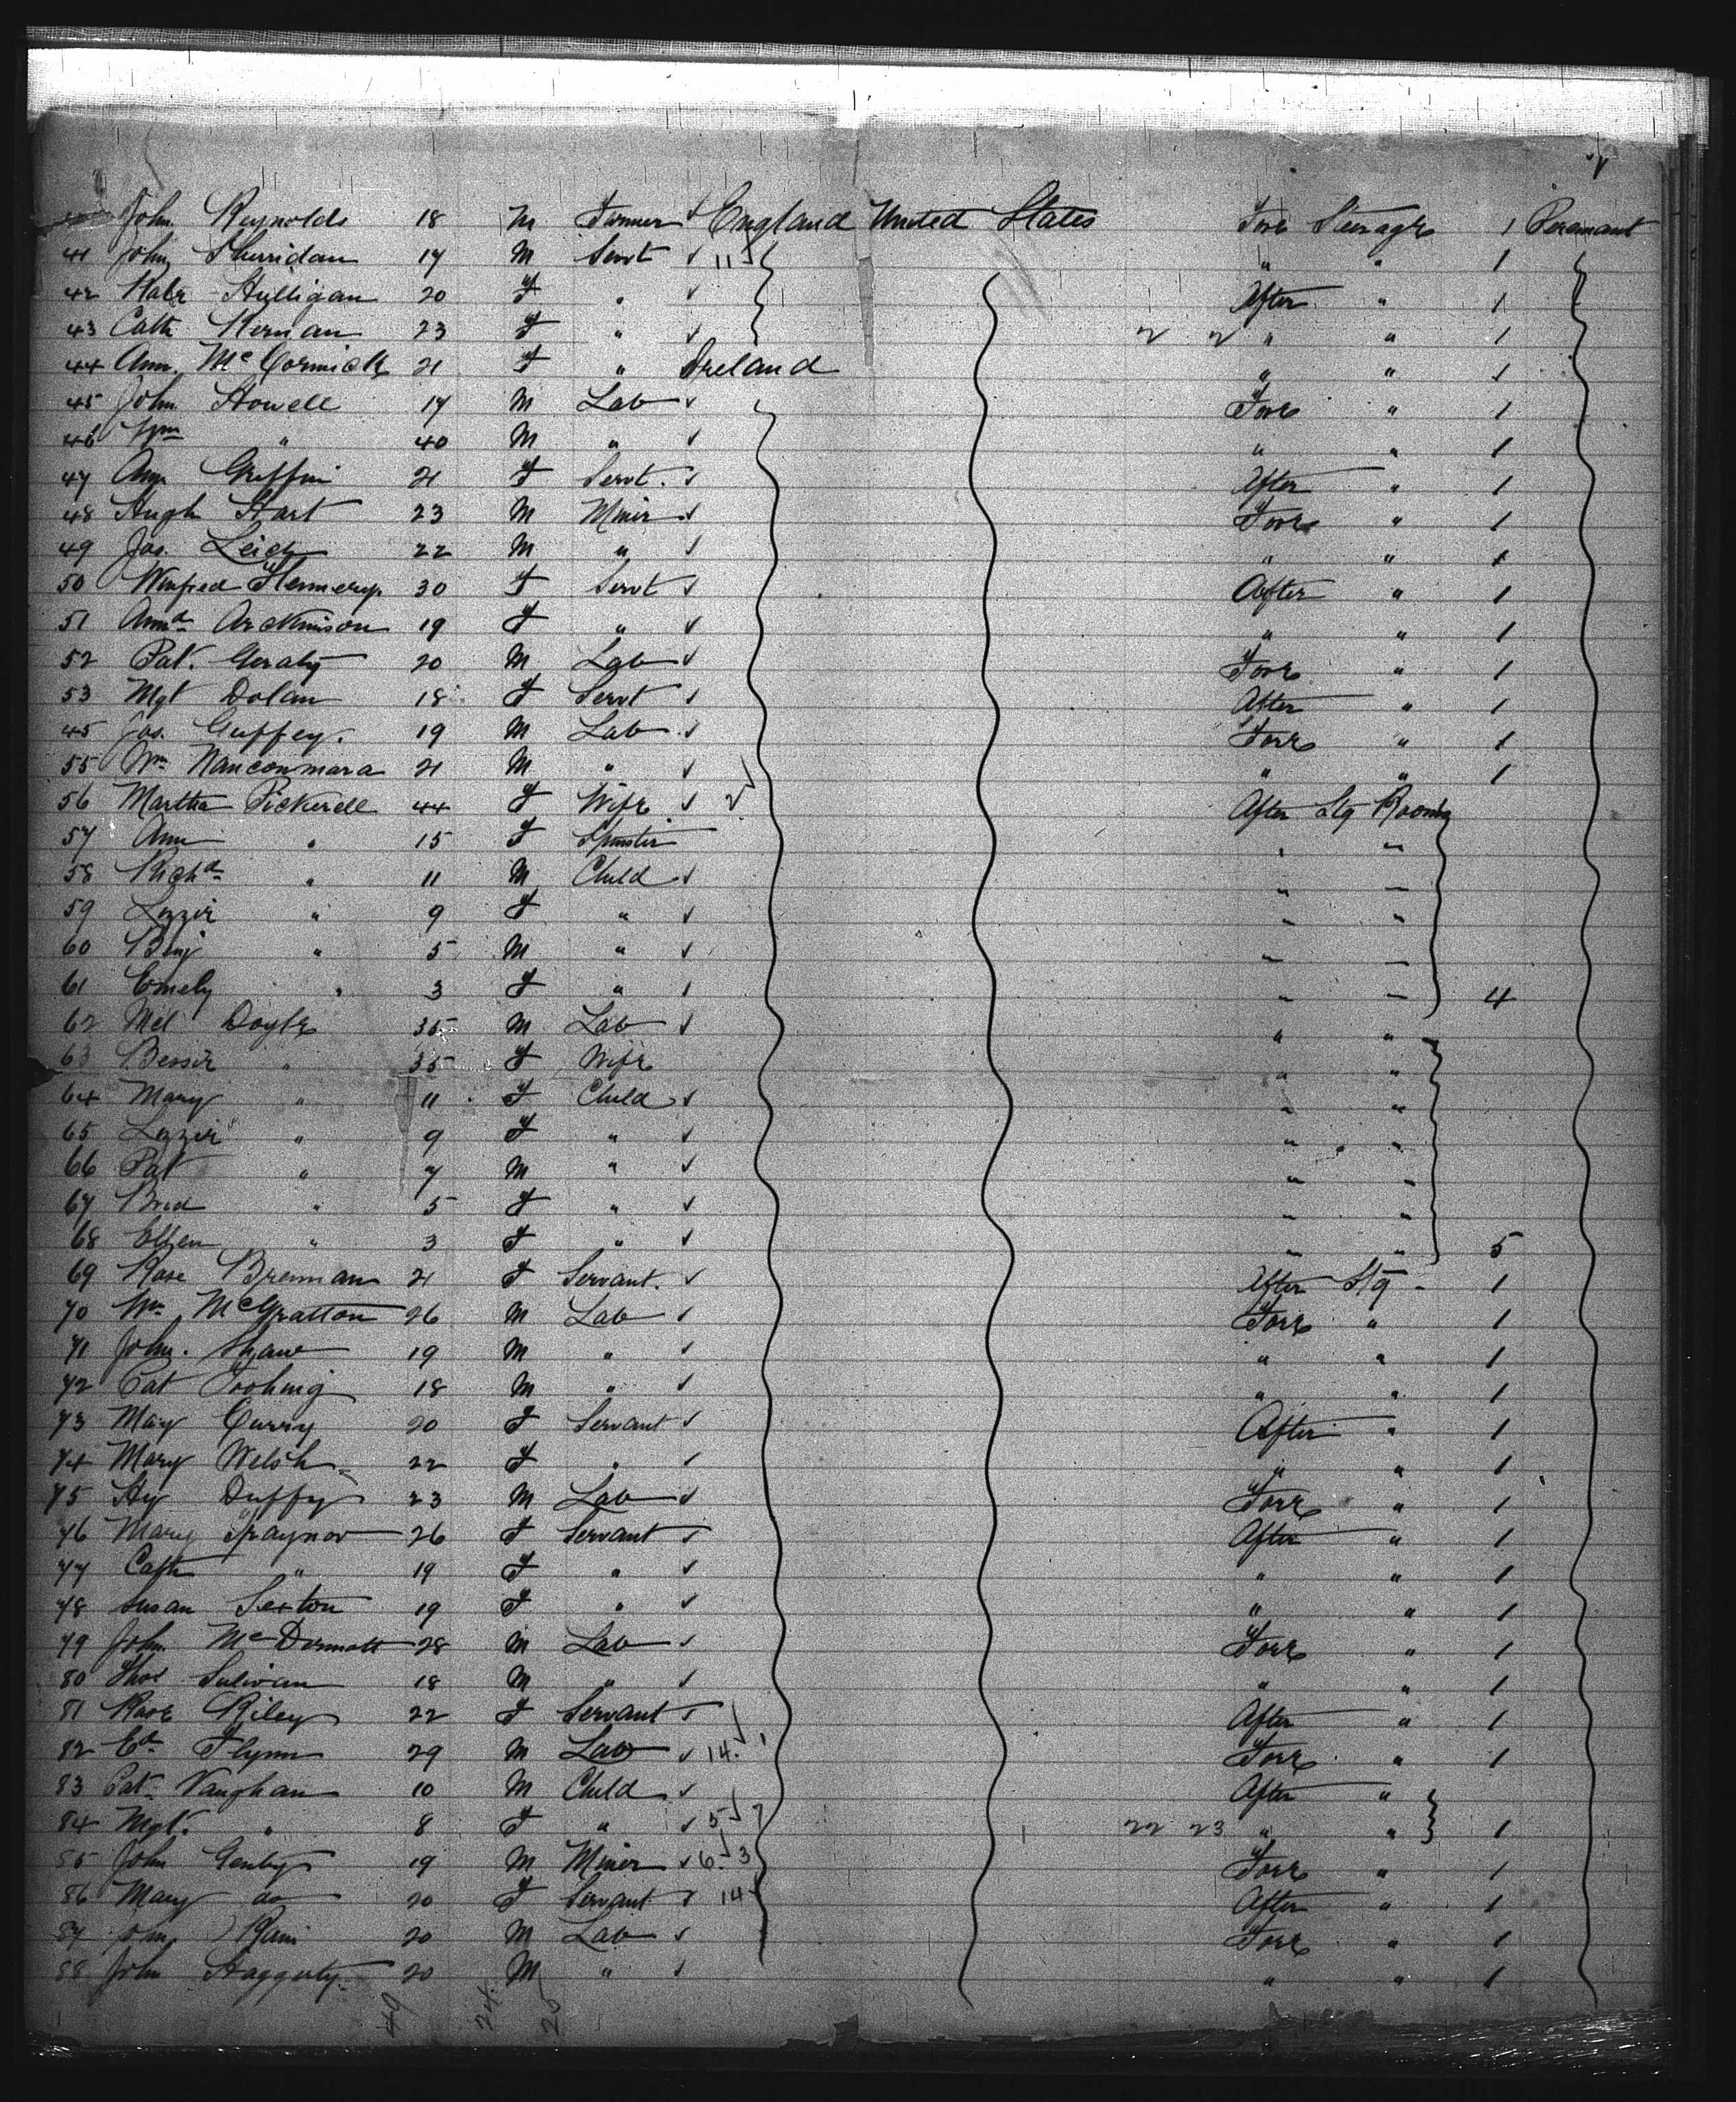 John Reynolds 18 M Farmer England United States Fore Steerage 1 Permanant
41 John Sherridan 17 M Servt 11 " " 1
42 Kate Hulligan 20 F " After " 1
43 Cath Kernan 23 F " 2 2 " " 1
44 Ann Mc Cormick 21 F " Ireland " " 1
45 John Howell 17 M Lab Fore " 1
46 Wm " 40 M " " " 1
47 Ann Griffin 21 F Servt. After " 1
48 Hugh Hart 23 M Miner Fore " 1
49 Jas. 22 M " " " 1
50 Winfred 30 F Servt After " 1
51 19 F " " " 1
52 Pat. Geraty 20 M Lab Fore " 1
53 Mgt Dolan 18 F Servt After " 1
45 Jas. Guffey. 19 M Lab Fore " 1
55 Wm 21 M " " " 1
56 Martha Pickerell 44 F Wife 2 After Stg Rooms
57 Ann " 15 F Spinster " "
58 Richd " 11 M Child " "
59 Lizzie " 9 F " " "
60 Benj " 5 M " " "
61 Emely " 3 F " " " 4
62 Mcl Doyle 35 M Lab " "
63 Bessie " 35 F Wife " "
64 Mary " 11 F Child " "
65 Lizzie " 9 F " " "
66 Pat " 7 M " " "
67 Brid " 5 F " " "
68 Ellen " 3 F " " " 5
69 Rose Brennan 21 F Servant. After Stg 1
70 Wm McGratton 26 M Lab Fore " 1
71 John. Shaw 19 M " " " 1
72 Pat 18 M " " " 1
73 Mary Curry 20 F Servant After " 1
74 Mary Welsh 22 F " " " 1
75 Hy Duffy 23 M Lab Fore " 1
76 Mary 26 F Servant After " 1
77 Cath " 19 F " " " 1
78 Susan Sexton 19 F " " " 1
79 John McDermott 28 M Lab Fore " 1
80 Thos Sulivan 18 M " " " 1
81 Rose Riley 22 F Servant After " 1
82 Ed Flynn 29 M Lab 14 Fore " 1
83 Pat. Vaughan 10 M Child After "
84 Mgt. " 8 F " 5 22 23 " " 1
85 John 19 M Miner 6 3 Fore " 1
86 Mary do 20 F Servant 14 After " 1
87 20 M Lab Fore " 1
88 John Haggerty 20 M " " " 1
49 24